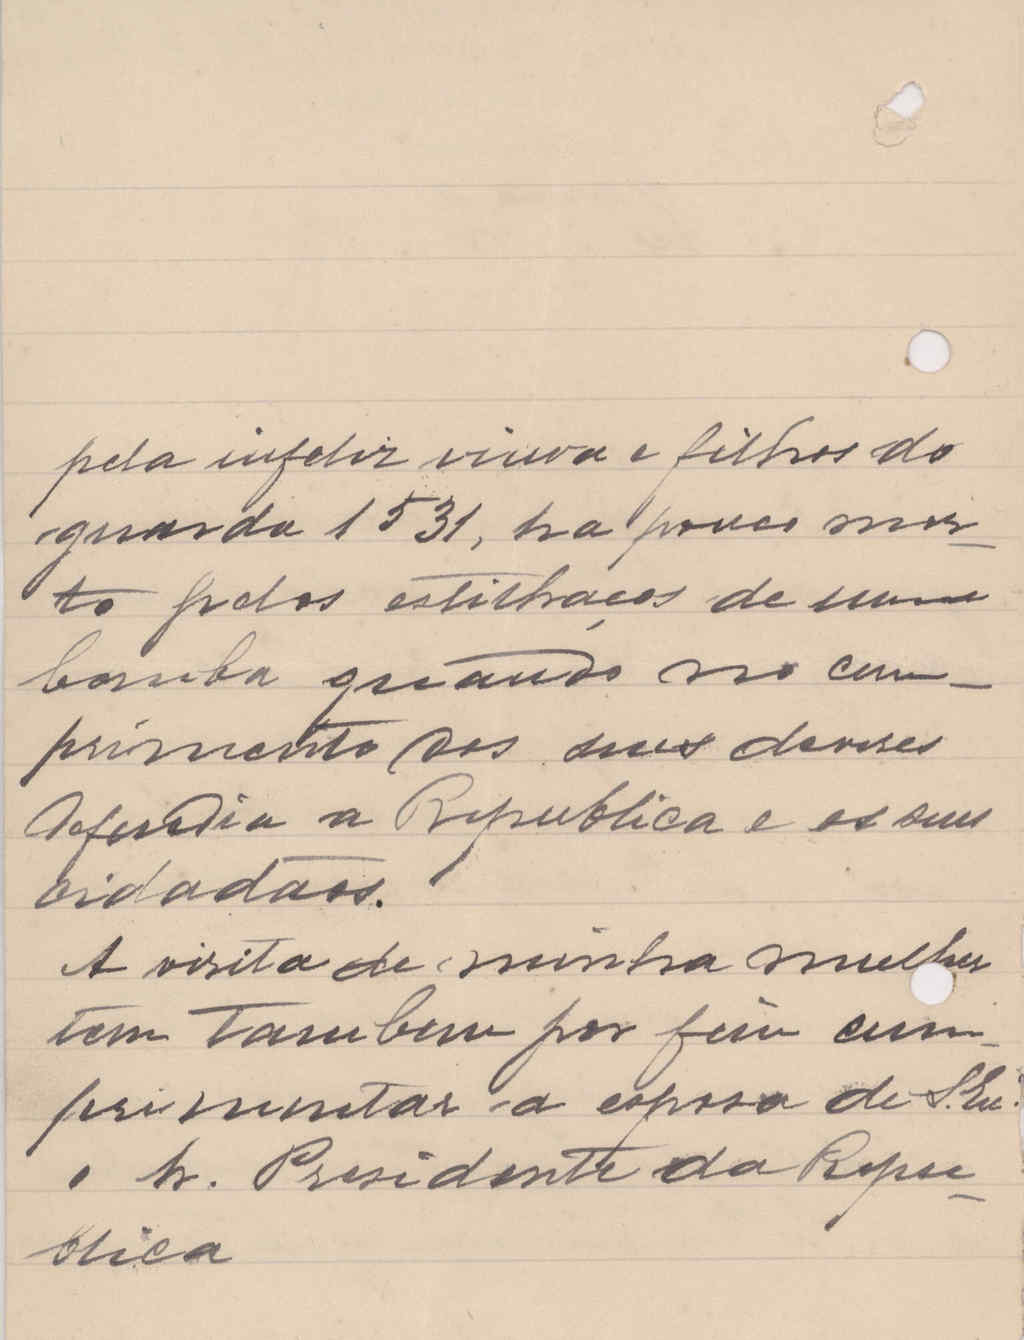 pela infeliz viuva e filhos do
guarda 1531, ha pouco mor-
to pelos estilhaços de uma
bomba quando no cum-
primento dos seus deveres
defendia a Republica e os seus
cidadãos.
A visita de minha mulher
tem tambem por fim cum-
primentar a esposa de S. Ex.ª
o Sr. Presidente da Repu-
blica